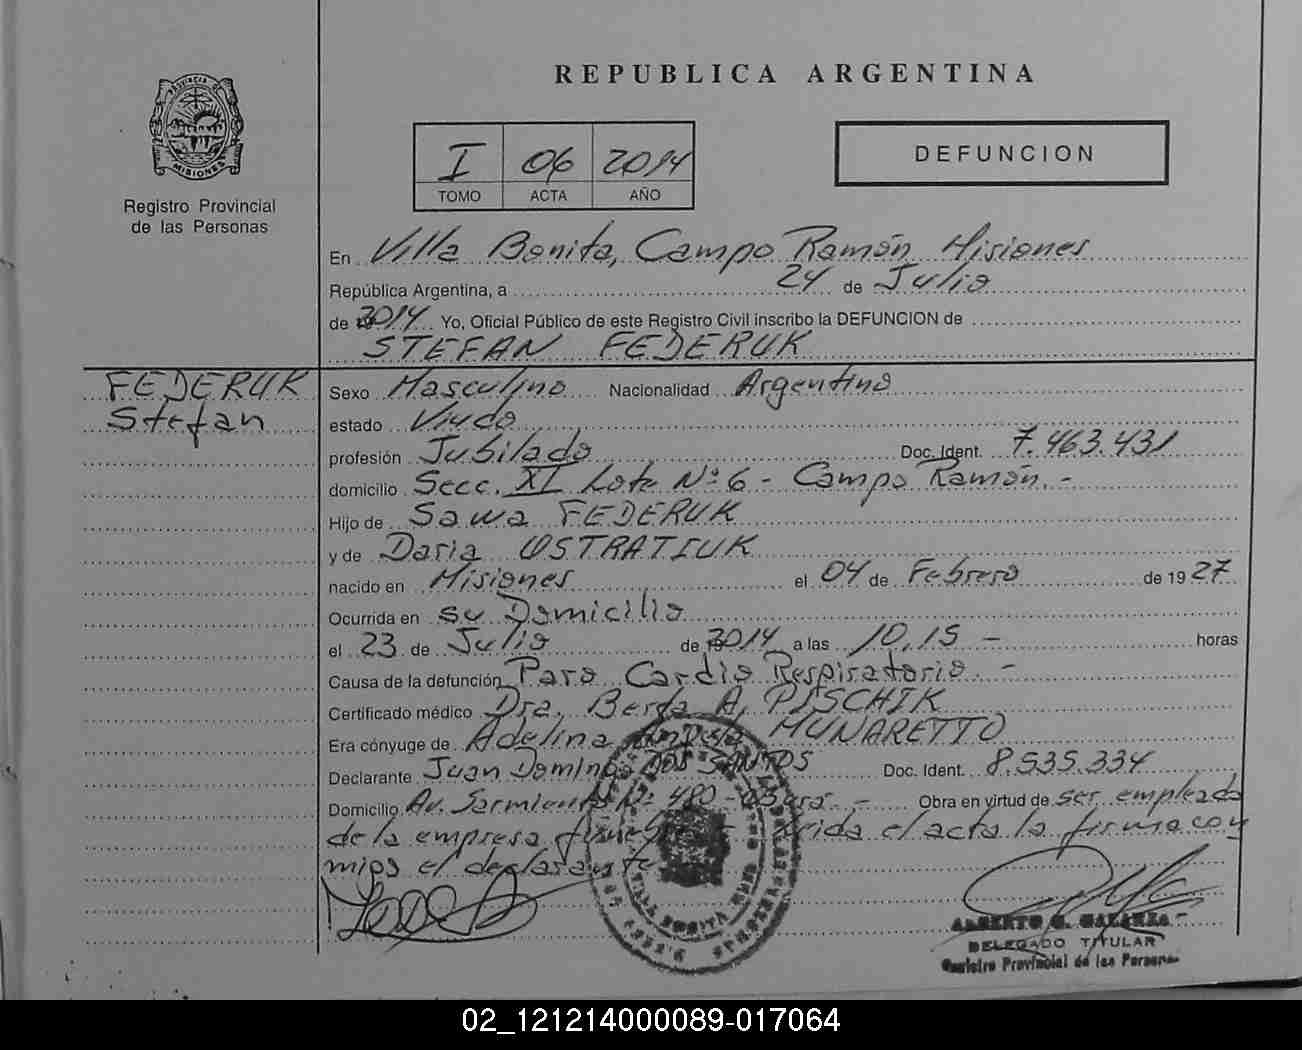 REPUBLICA ARGENTINA
PROVINCIA DE
MISIONES
Registro Provincial
de las Personas
I 06 2014
TOMO ACTA AÑO
DEFUNCION
En Villa Bonita, Campo Ramón Misiones
República Argentina, a 24 de Julio
de 2014 Yo, Oficial Público de este Registro Civil inscribo la DEFUNCION de
STEFAN FEDERUK
FEDERUK
Stefan
Sexo Masculino Nacionalidad Argentino
estado Viudo
profesión Jubilado Doc. Ident. 7.463.431
domicilio Secc. XI Lote Nº 6 - Campo Ramón. -
Hijo de Sawa FEDERUK
y de Daria OSTRATIUK
nacido en Misiones el 04 de Febrero de 1927
Ocurrida en su Domicilio
el 23 de Julio de 2014 a las 10,15 - horas
Causa de la defunción Paro Cardio Respiratorio. -
Certificado médico Dra. Berta A. PISCHIK
Era cónyuge de Adelina MUNARETTO
Declarante Juan Domingo DOS SANTOS Doc. Ident. 8.535.334
Domicilio Av. Sarmiento Nº 480 - Oberá - Obra en virtud de ser empleado
de la empresa el acta la firma con
migo el declarante
VILLA BONITA
DELEGADO TITULAR
Registro Provincial de las Personas
02_121214000089-017064